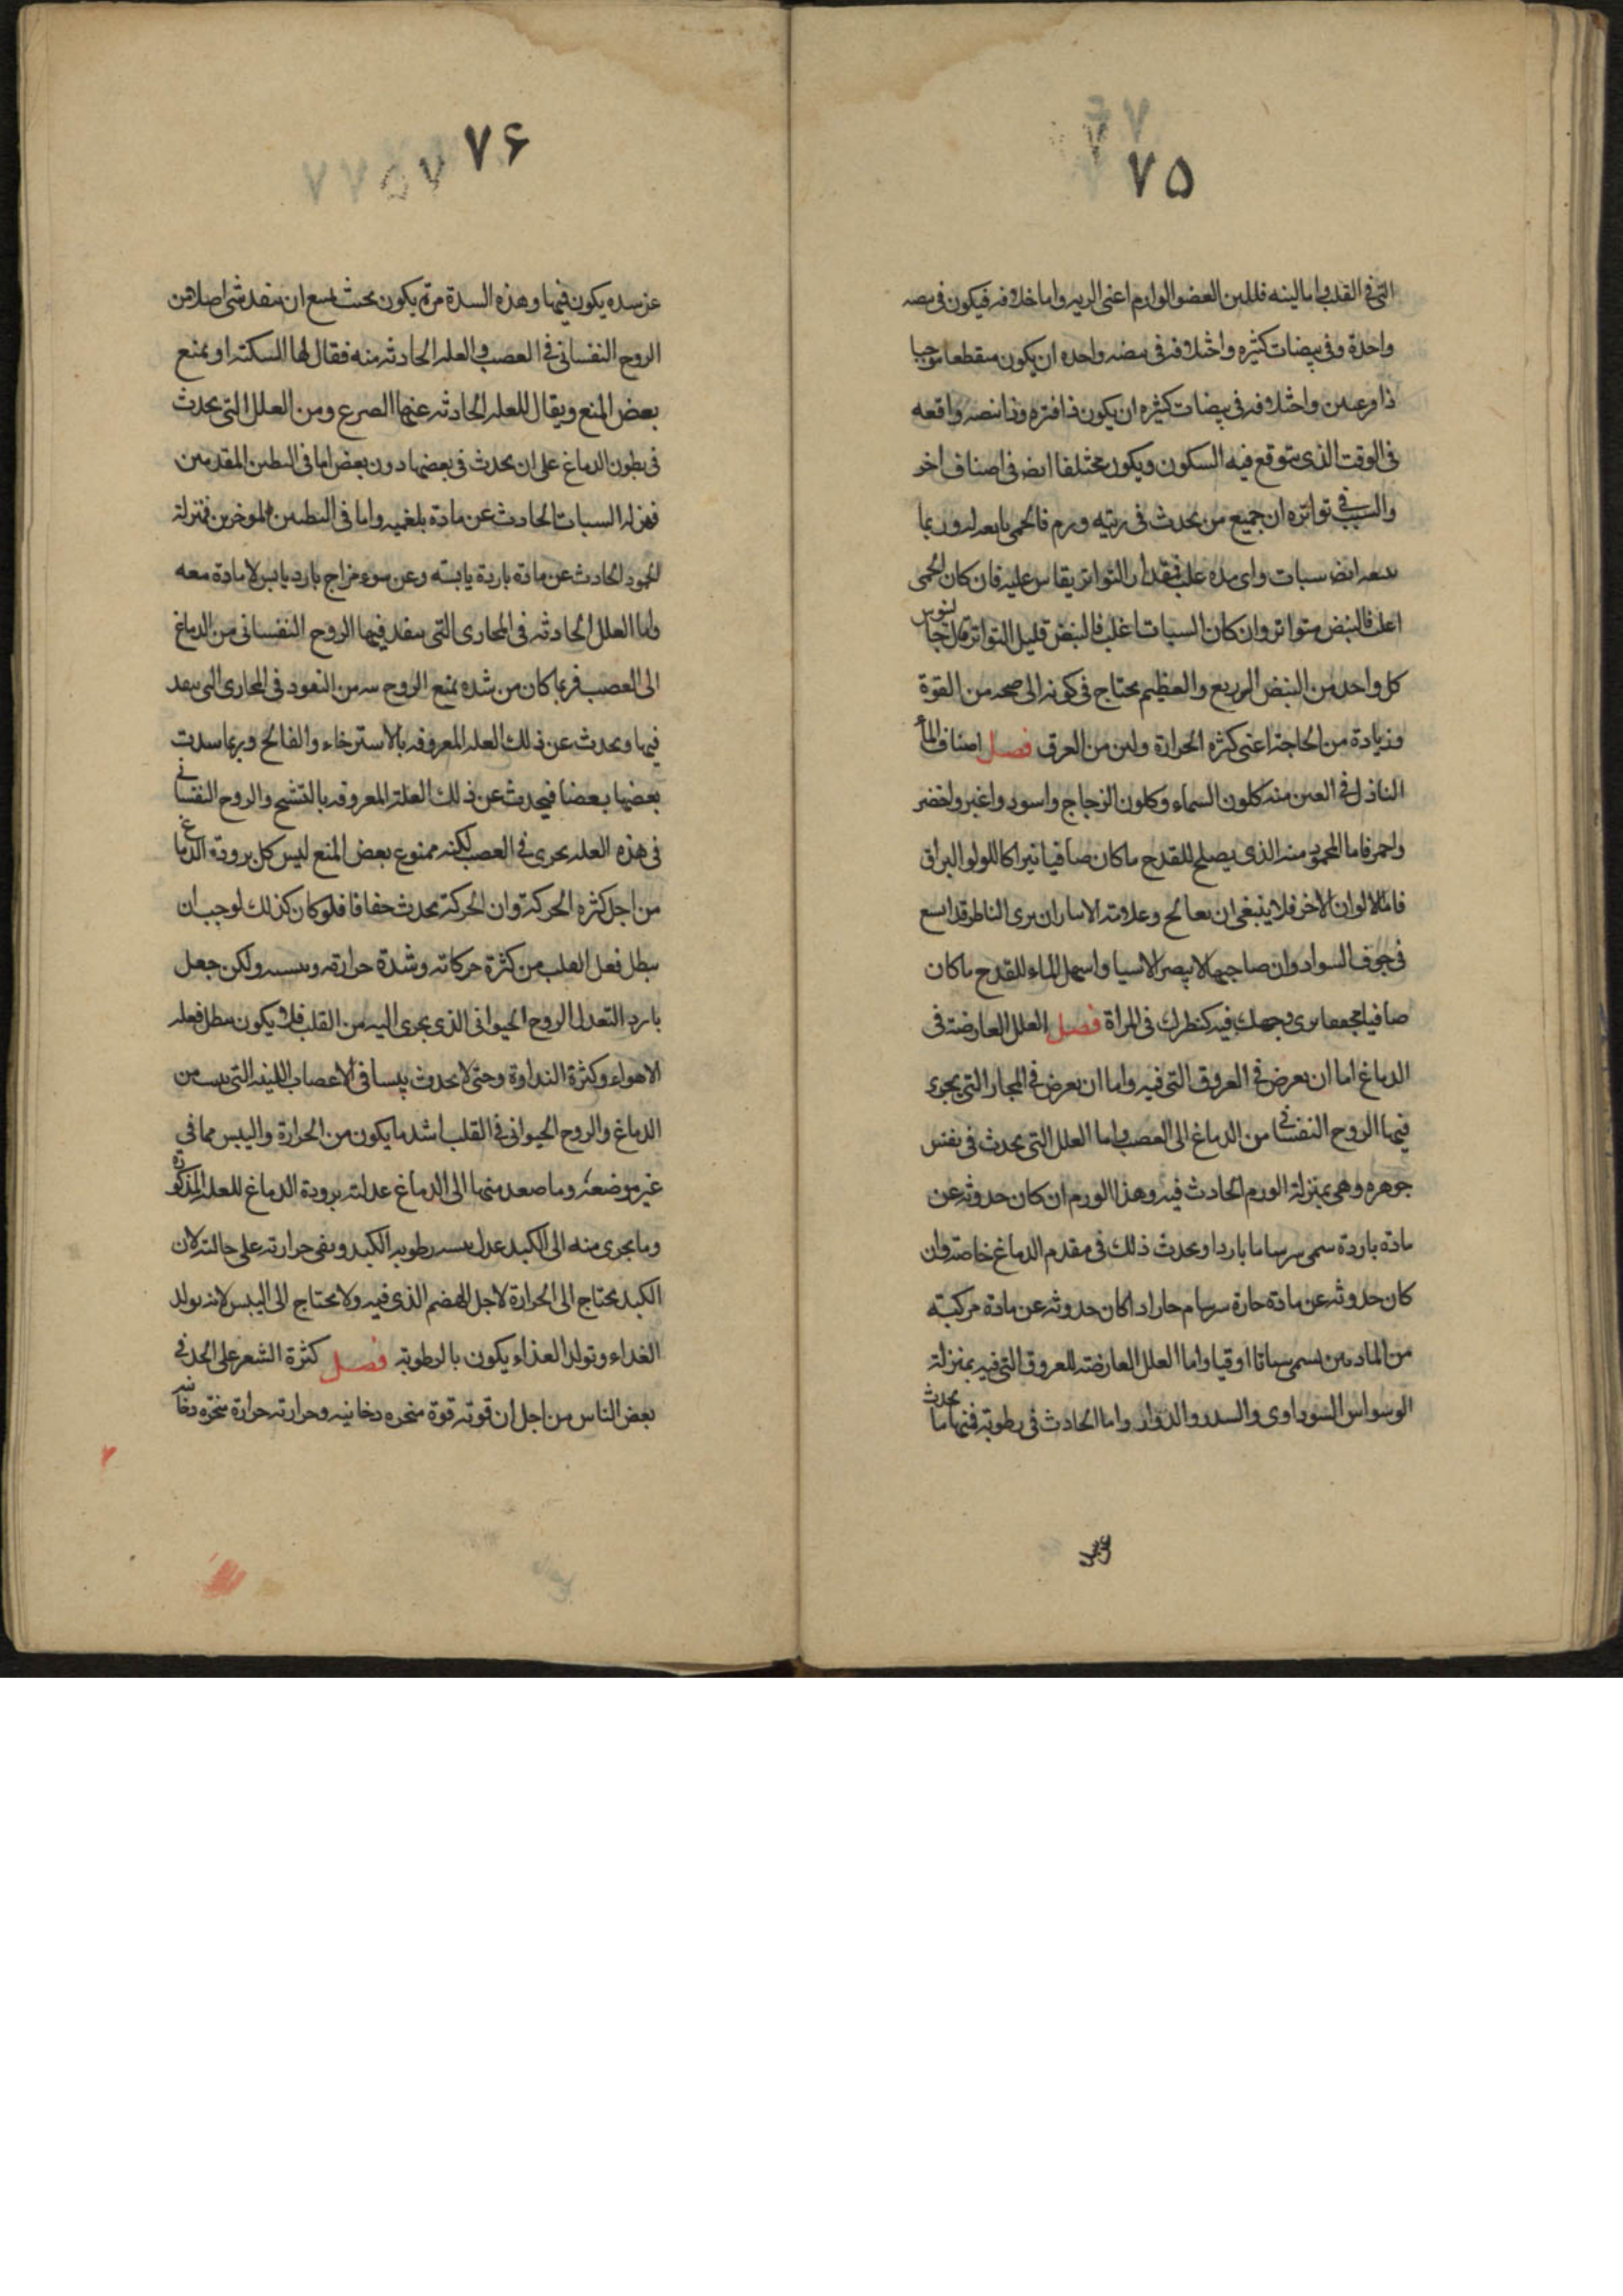 ۷۵
التی فی القلب واما لینه فللین العضو الوارم اعنی الریه واما اختلافه فیکون فی نبضه
واحدة وفی نبضات کثیره واختلافه فی نبضه واحده ان یکون منقطعا موجیا
ذا قرعتین واختلافه فی نبضات کثیره ان یکون ذا فتره وذا نبضه واقعه
فی الوقت الذی یتوقع فیه السکون ویکون مختلفا ایضا فی اصناف اخر
والسبب فی تواتره ان جمیع من یحدث فی ریته ورم فالحمی تابعه له وربما
تبعه ایضا سبات وای هذه غلب فمقدار التواتر یقاس علیه فان کان الحمی
اغلب فالنبض متواتر وان کان السبات اغلب فالنبض قلیل التواتر قال جالنوس
کل واحد من النبض السریع والعظیم یحتاج فی کونه الی صحه من القوة
وزیادة من الحاجة اعنی کثره الحرارة ولین من العرق فصل اصناف الماء
النازل فی العین منه کلون السماء وکلون الزجاج واسود واغبر واخضر
واحمر فاما المحمود منه الذی یصلح للقدح ما کان صافیا نیرا کاللولو البراق
فاما الالوان الاخر فلا ینبغی ان یعالج وعلامته الانتشار ان یری الناظر قد اتسع
فی جوف السواد وان صاحبها لا یبصر الاشیا واسهل الماء للقدح ما کان
صافیا مجتمعا یری وجهک فیه کنظرک فی المراة فصل العلل العارضة فی
الدماغ اما ان یعرض فی العروق التی فیه واما ان یعرض فی المجار التی یجری
فیها الروح النفسانی من الدماغ الی العصب واما العلل التی یحدث فی نفس
جوهره وهی بمنزلة الورم الحادث فیه وهذا الورم ان کان حدوثه عن
مادة باردة سمی سرساما باردا ویحدث ذلک فی مقدم الدماغ خاصة وان
کان حدوثه عن مادة حارة سرسام حار اذا کان حدوثه عن مادة مرکبة
من المادتین یسمی سباتا ارقیا واما العلل العارضة للعروق التی فیه بمنزلة
الوسواس السوداوی والسدر والدوار واما الحادث فی رطوبته فمنها ما یحدث
۷۶
عن سده یکون فیها وهذه السدة مرة یکون بحیث یمنع ان ینفذ شی اصلا من
الروح النفسانی فی العصب والعلة الحادثه منه فقال لها السکته او یمنع
بعض المنع ویقال للعلة الحادثه عنها الصرع ومن العلل التی یحدث
فی بطون الدماغ علی ان یحدث فی بعضها دون بعض اما فی البطنین المقدمین
فبمنزلة السبات الحادث عن مادة بلغمیه واما فی البطنین الموخرین فبمنزلة
الجمود الحادث عن مادة باردة یابسه وعن سوء مزاج بارد یابس لا مادة معه
واما العلل الحادثه فی المجاری التی ینفذ فیها الروح النفسانی من الدماغ
الی العصب فربما کان من شده یمنع الروح من النفوذ فی المجاری التی ینفذ
فیها ویحدث عن ذلک العلة المعروفه بالاسترخاء والفالج وربما سدت
بعضها بعضا فیحدث عن ذلک العلة المعروفه بالتشنج والروح النفسانی
فی هذه العله یجری فی العصب لکنه ممنوع بعض المنع لیس کل برودة الدماغ
من اجل کثره الحرکة وان الحرکة یحدث جفافا فلو کان کذلک لوجب ان
یبطل فعل القلب من کثرة حرکاته وشدة حرارته ویبسه ولکن جعل
باردا لتعدل الروح الحیوانی الذی یجری الیه من القلب فلا یکون یبطل فعله
الاهواء وکثرة النداوة وحتی لا یحدث یبسا فی الاعصاب اللینه التی ینبت من
الدماغ والروح الحیوانی فی القلب اشد ما یکون من الحرارة والیبس مما فی
غیر موضعه وما صعد منها الی الدماغ عدلته برودة الدماغ للعلة المذکورة
وما یجری منه الی الکبد عدل یبسه رطوبه الکبد وبقی حرارته علی حالته لان
الکبد یحتاج الی الحرارة لاجل الهضم الذی فیه ولا یحتاج الی الیبس لانه یولد
الغداء وتولد الغذاء یکون بالرطوبة فصل کثرة الشعر علی الجلد فی
بعض الناس من اجل ان قوته قوة مبخره دخانیه وحرارته حرارة مبخره دخانیه